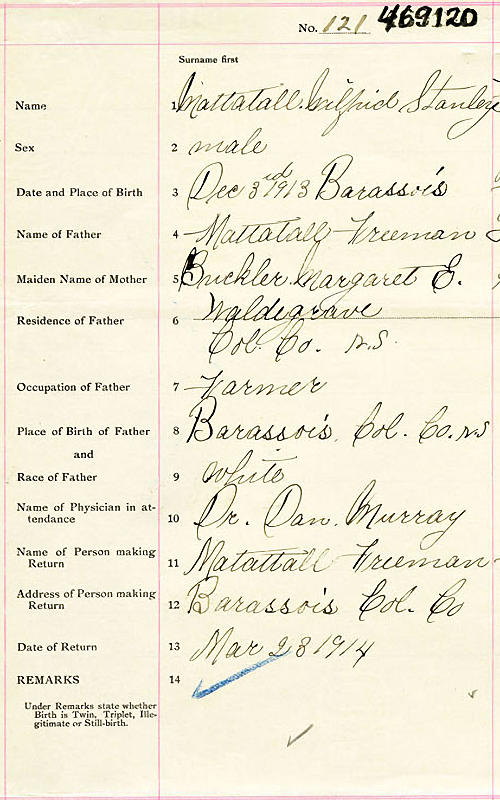 No. 121 469120
Surname first
Name 1 Mattatall Wilfrid Stanley
Sex 2 male
Date and Place of Birth 3 Dec 3rd 1913 Barassois
Name of Father 4 Mattatall Freeman
Maiden Name of Mother 5 Buckler Margaret E.
Residence of Father 6 Waldegrave
Col. Co. N.S.
Occupation of Father 7 Farmer
Place of Birth of Father 8 Barassois, Col. Co. N.S
and
Race of Father 9 White
Name of Physician in at-
tendance 10 Dr. Dan. Murray
Name of Person making
Return 11 Matattall Freeman
Address of Person making
Return 12 Barassois Col. Co
Date of Return 13 Mar 28 1914
REMARKS 14
Under Remarks state whether
Birth is Twin, Triplet, Ille-
gitimate or Still-birth.